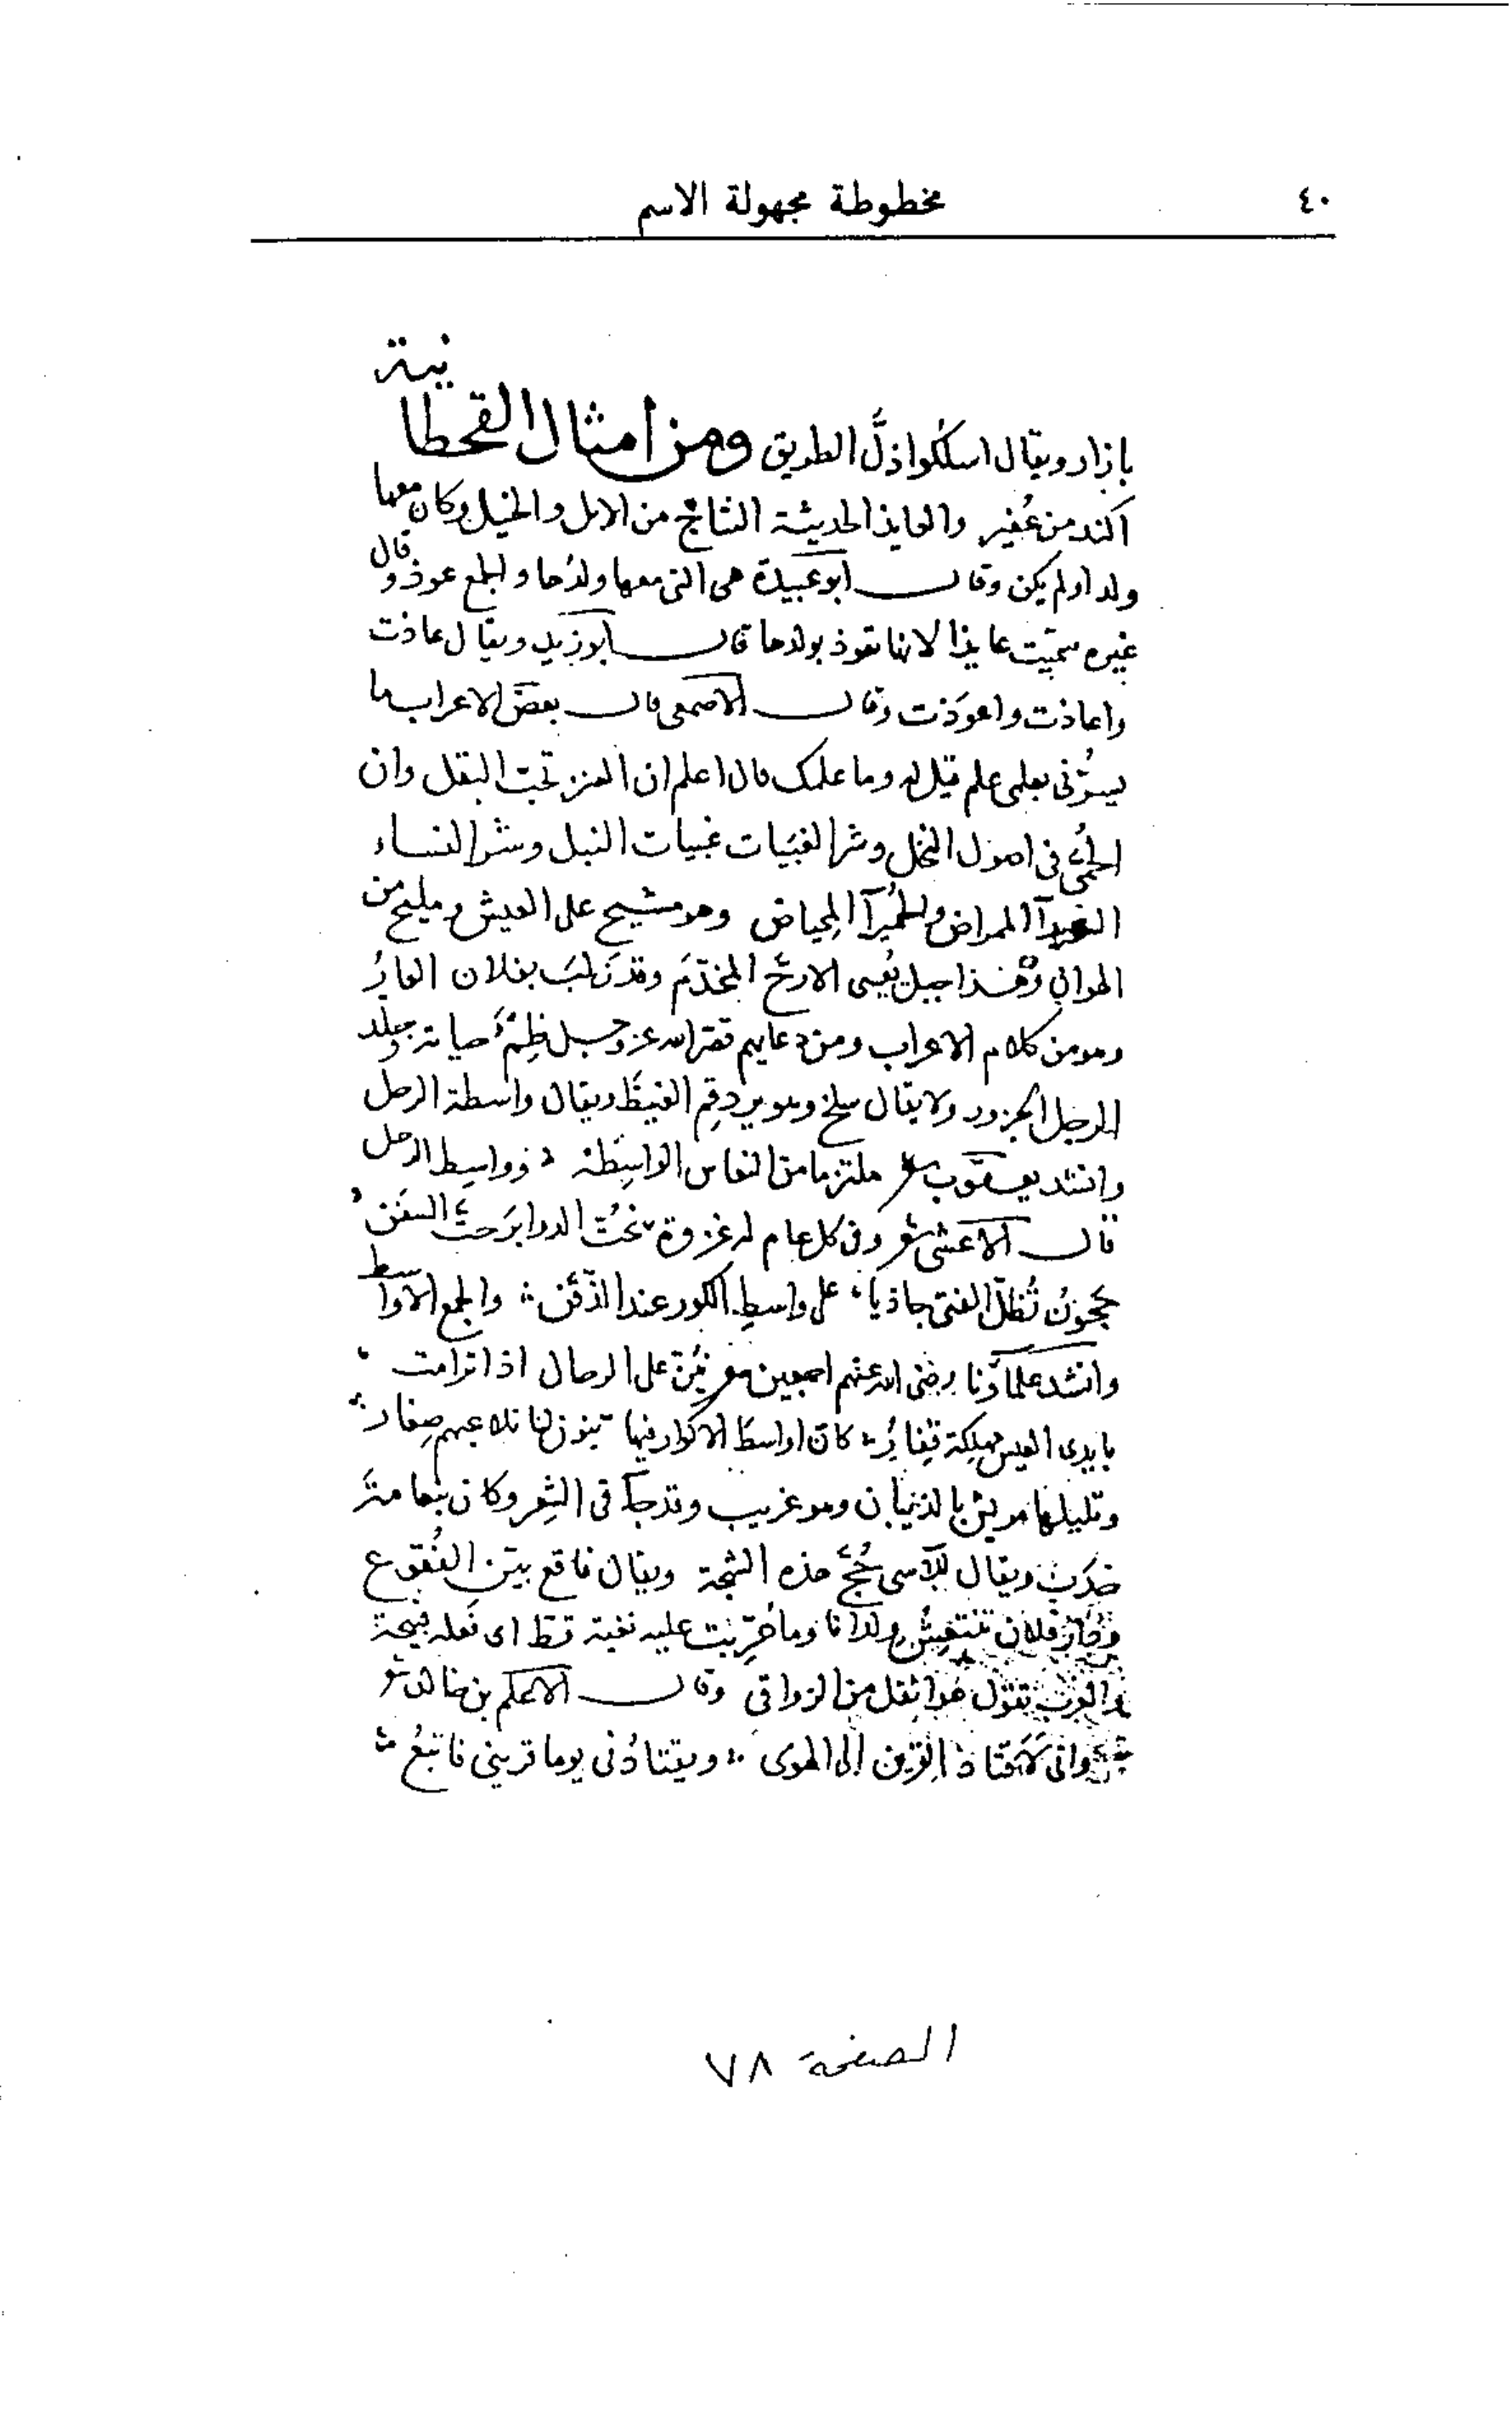 ٤٠
مخطوطة مجهولة الاسم
بازار ويقال اسلكوا ذلّ الطريق ومن امثال القحطانية
اكند من عُفير والعايذ الحديثة النتاج من الابل والخيل وكان معها
ولد او لم يكن وقال ابو عبيدة هى التى معها ولدُها والجمع عوذ وقال
غيره سمّيت عايذا لانها تعوذ بولدها قال ابو زيد ويقال عاذت
واعاذت واعوذت وقال الاصمعى قال بعض الاعراب ما
يسؤنى بعلمى علم قيل له وما علمك قال اعلم ان العنز تحب البقل وان
الحمى فى اصول النخل وشر الغبيات غبيات النبل وشر النساء
الممراض والحُميرآ المحياض وهو مشيح على العيش ومليح من
الهوان وهذا جبل يُعيى الارحّ المخدّم وقد بفلان
وهو من كلام الاعراب ومن دعايهم قصر الله عز وجل ظِمْءَ حياته وجلد
الرجل الجزور ولا يقال سلخ وهو يردقم الغيظ ويقال واسطة الرحل
وانشد يعقوب شعر ملتزما من النعاس الواسِطة وواسِط الرحل
قال الاعشى شعر وفى كل عام له غزوة تحُتّ الدوابرَ حتَّ السفَن
حجونٌ تُظلّ الفتى جاذيا على واسِط الكور عند الذّقَن والجمع الاواسط
وانشد علماؤنا رضى الله عنهم اجمعين شعر على الرحال اذا ترامت
بايدى العيس مهلكة قِفارُ كان اواسط الاكوار فيها بنون لنا تلاعبهم صِغار
وقليل ما بالذنبان وهو غريب وقد جآ فى الشِعر وكان
ضربت ويقال للآسى حُجَّ هذه الشجة ويقال فاقع بيّن الفُقوع
فلان ولدانا وما عليه نغية قط اى فعلة قبيحة
والعرب تقول هو اثقل من الزواقى وقال الحكم بن خالد شعر
وانى لاقتاد القرين الى الهوى ويقتادنى يوما قرينى فاتبعُ
الصفحة ٧٨